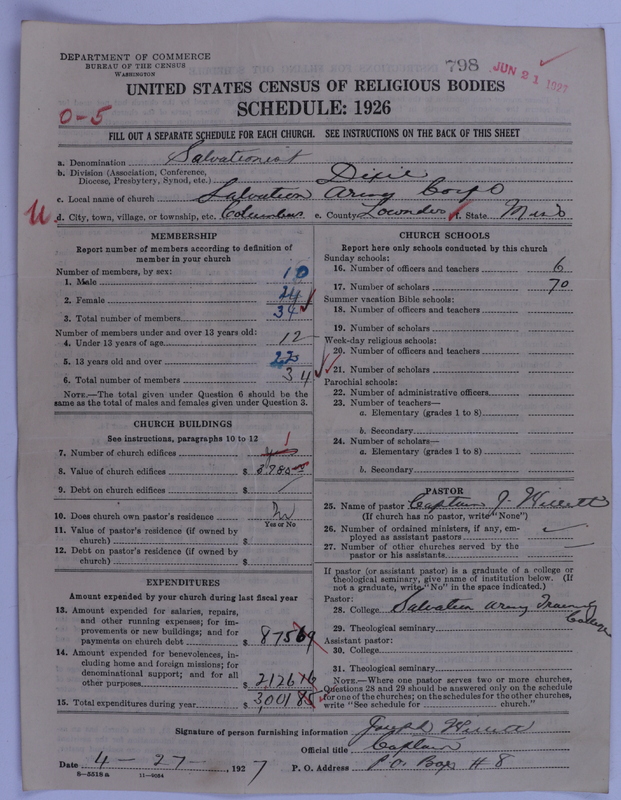 DEPARTMENT OF COMMERCE
BUREAU OF THE CENSUS
WASHINGTON
798 JUN 21 1927
UNITED STATES CENSUS OF RELIGIOUS BODIES
SCHEDULE: 1926
0-5
FILL OUT A SEPARATE SCHEDULE FOR EACH CHURCH. SEE INSTRUCTIONS ON THE BACK OF THIS SHEET
a. Denomination Salvationist
b. Division (Association, Conference,
Diocese, Presbytery, Synod, etc.) Dixie
c. Local name of church Salvation Army Corps
d. City, town, village, or township, etc. Columbus e. County Lowndes f. State Miss
MEMBERSHIP
Report number of members according to definition of
member in your church
Number of members, by sex:
1. Male 10
2. Female 24
3. Total number of members 34
Number of members under and over 13 years old:
4. Under 13 years of age 12
5. 13 years old and over 22
6. Total number of members 34
NOTE.—The total given under Question 6 should be
same as the total of males and females given under Question 3.
CHURCH BUILDINGS
See instructions, paragraphs 10 to 12
7. Number of church edifices 1
8. Value of church edifices $ 3785.00
9. Debt on church edifices $
10. Does church own pastor's residence No
Yes or No
11. Value of pastor's residence (if owned by
church) $
12. Debt on pastor's residence (if owned by
church) $
EXPENDITURES
Amount expended by your church during last fiscal year
13. Amount expended for salaries, repairs,
and other running expenses; for im-
provements or new buildings; and for
payments on church debt $ 875 69
14. Amount expended for benevolences, in-
cluding home and foreign missions; for
denominational support; and for all
other purposes $ 2126 16
15. Total expenditures during year $ 3,001 85
CHURCH SCHOOLS
Report here only schools conducted by this church
Sunday schools:
16. Number of officers and teachers 6
17. Number of scholars 70
Summer vacation Bible schools:
18. Number of officers and teachers
19. Number of scholars
Week-day religious schools:
20. Number of officers and teachers
21. Number of scholars
Parochial schools:
22. Number of administrative officers
23. Number of teachers—
a. Elementary (grades 1 to 8)
b. Secondary
24. Number of scholars—
a. Elementary (grades 1 to 8)
b. Secondary
PASTOR
25. Name of pastor Captain J. Willett
(If church has no pastor, write "None")
26. Number of ordained ministers, if any, em-
ployed as assistant pastors
27. Number of other churches served by the
pastor or his assistants
If pastor (or assistant pastor) is a graduate of a college or
theological seminary, give name of institution below. (If
not a graduate, write "No" in the space indicated.)
Pastor:
28. College Salvation Army Training
College
29. Theological seminary
Assistant pastor:
30. College
31. Theological seminary
NOTE.—Where one pastor serves two or more churches,
Questions 28 and 29 should be answered only on the schedule
for one of the churches; on the schedules for the other churches,
write "See schedule for church."
Signature of person furnishing information Joseph Willett
Official title Captain
Date 4 - 27 -, 1927 P. O. Address P.O. Box #8
8-5518a 11-9064